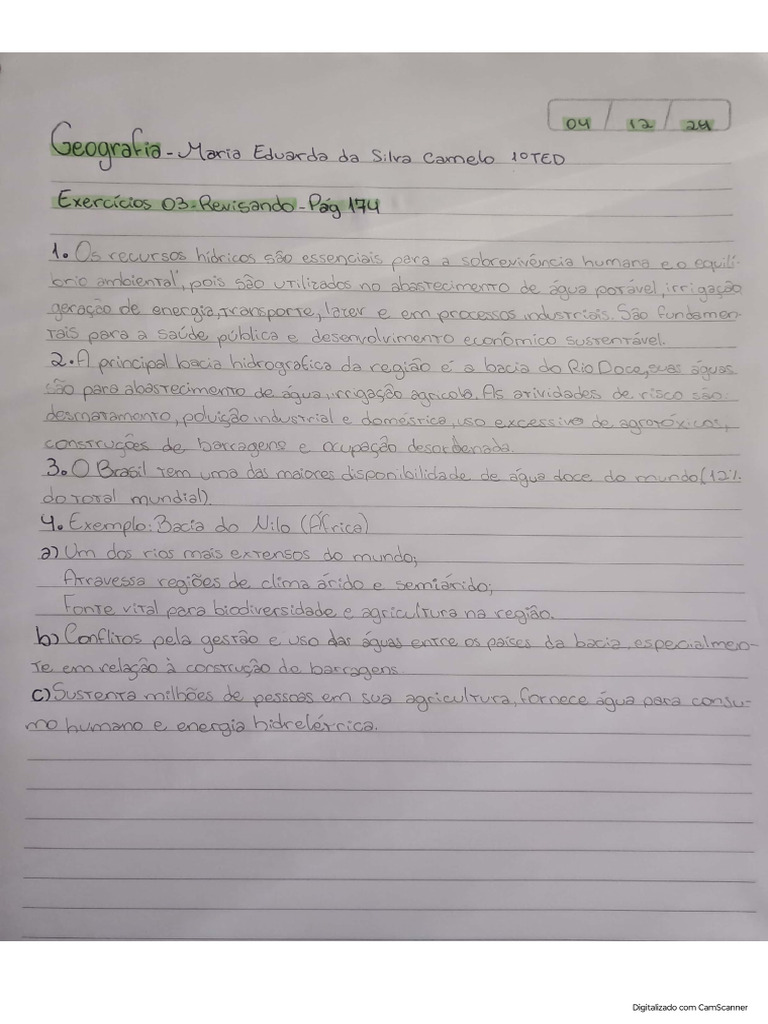 04 / 12 / 24
Geografia - Maria Eduarda da Silva Camelo 1º TED
Exercícios 03 - Revisando - Pág 174
1. Os recursos hídricos são essenciais para a sobrevivência humana e o equilí-
brio ambiental, pois são utilizados no abastecimento de água potável, irrigação
geração de energia, transporte, lazer e em processos industriais. São fundamen-
tais para a saúde pública e desenvolvimento econômico sustentável.
2. A principal bacia hidrografica da região é a bacia do Rio Doce, suas águas
são para abastecimento de água, irrigação agricola. As atividades de risco são
desmatamento, poluição industrial e doméstica, uso excessivo de agrotóxicos,
construções de barragens e ocupação desordenada.
3. O Brasil tem uma das maiores disponibilidade de água doce do mundo (12%
do total mundial).
4. Exemplo: Bacia do Nilo (África)
a) Um dos rios mais extensos do mundo;
Atravessa regiões de clima árido e semiárido;
Fonte vital para biodiversidade e agricultura na região.
b) Conflitos pela gestão e uso das águas entre os países da bacia, especialmen-
te em relação à construção de barragens
c) Sustenta milhões de pessoas em sua agricultura, fornece água para consu-
mo humano e energia hidrelétrica.
Digitalizado com CamScanner